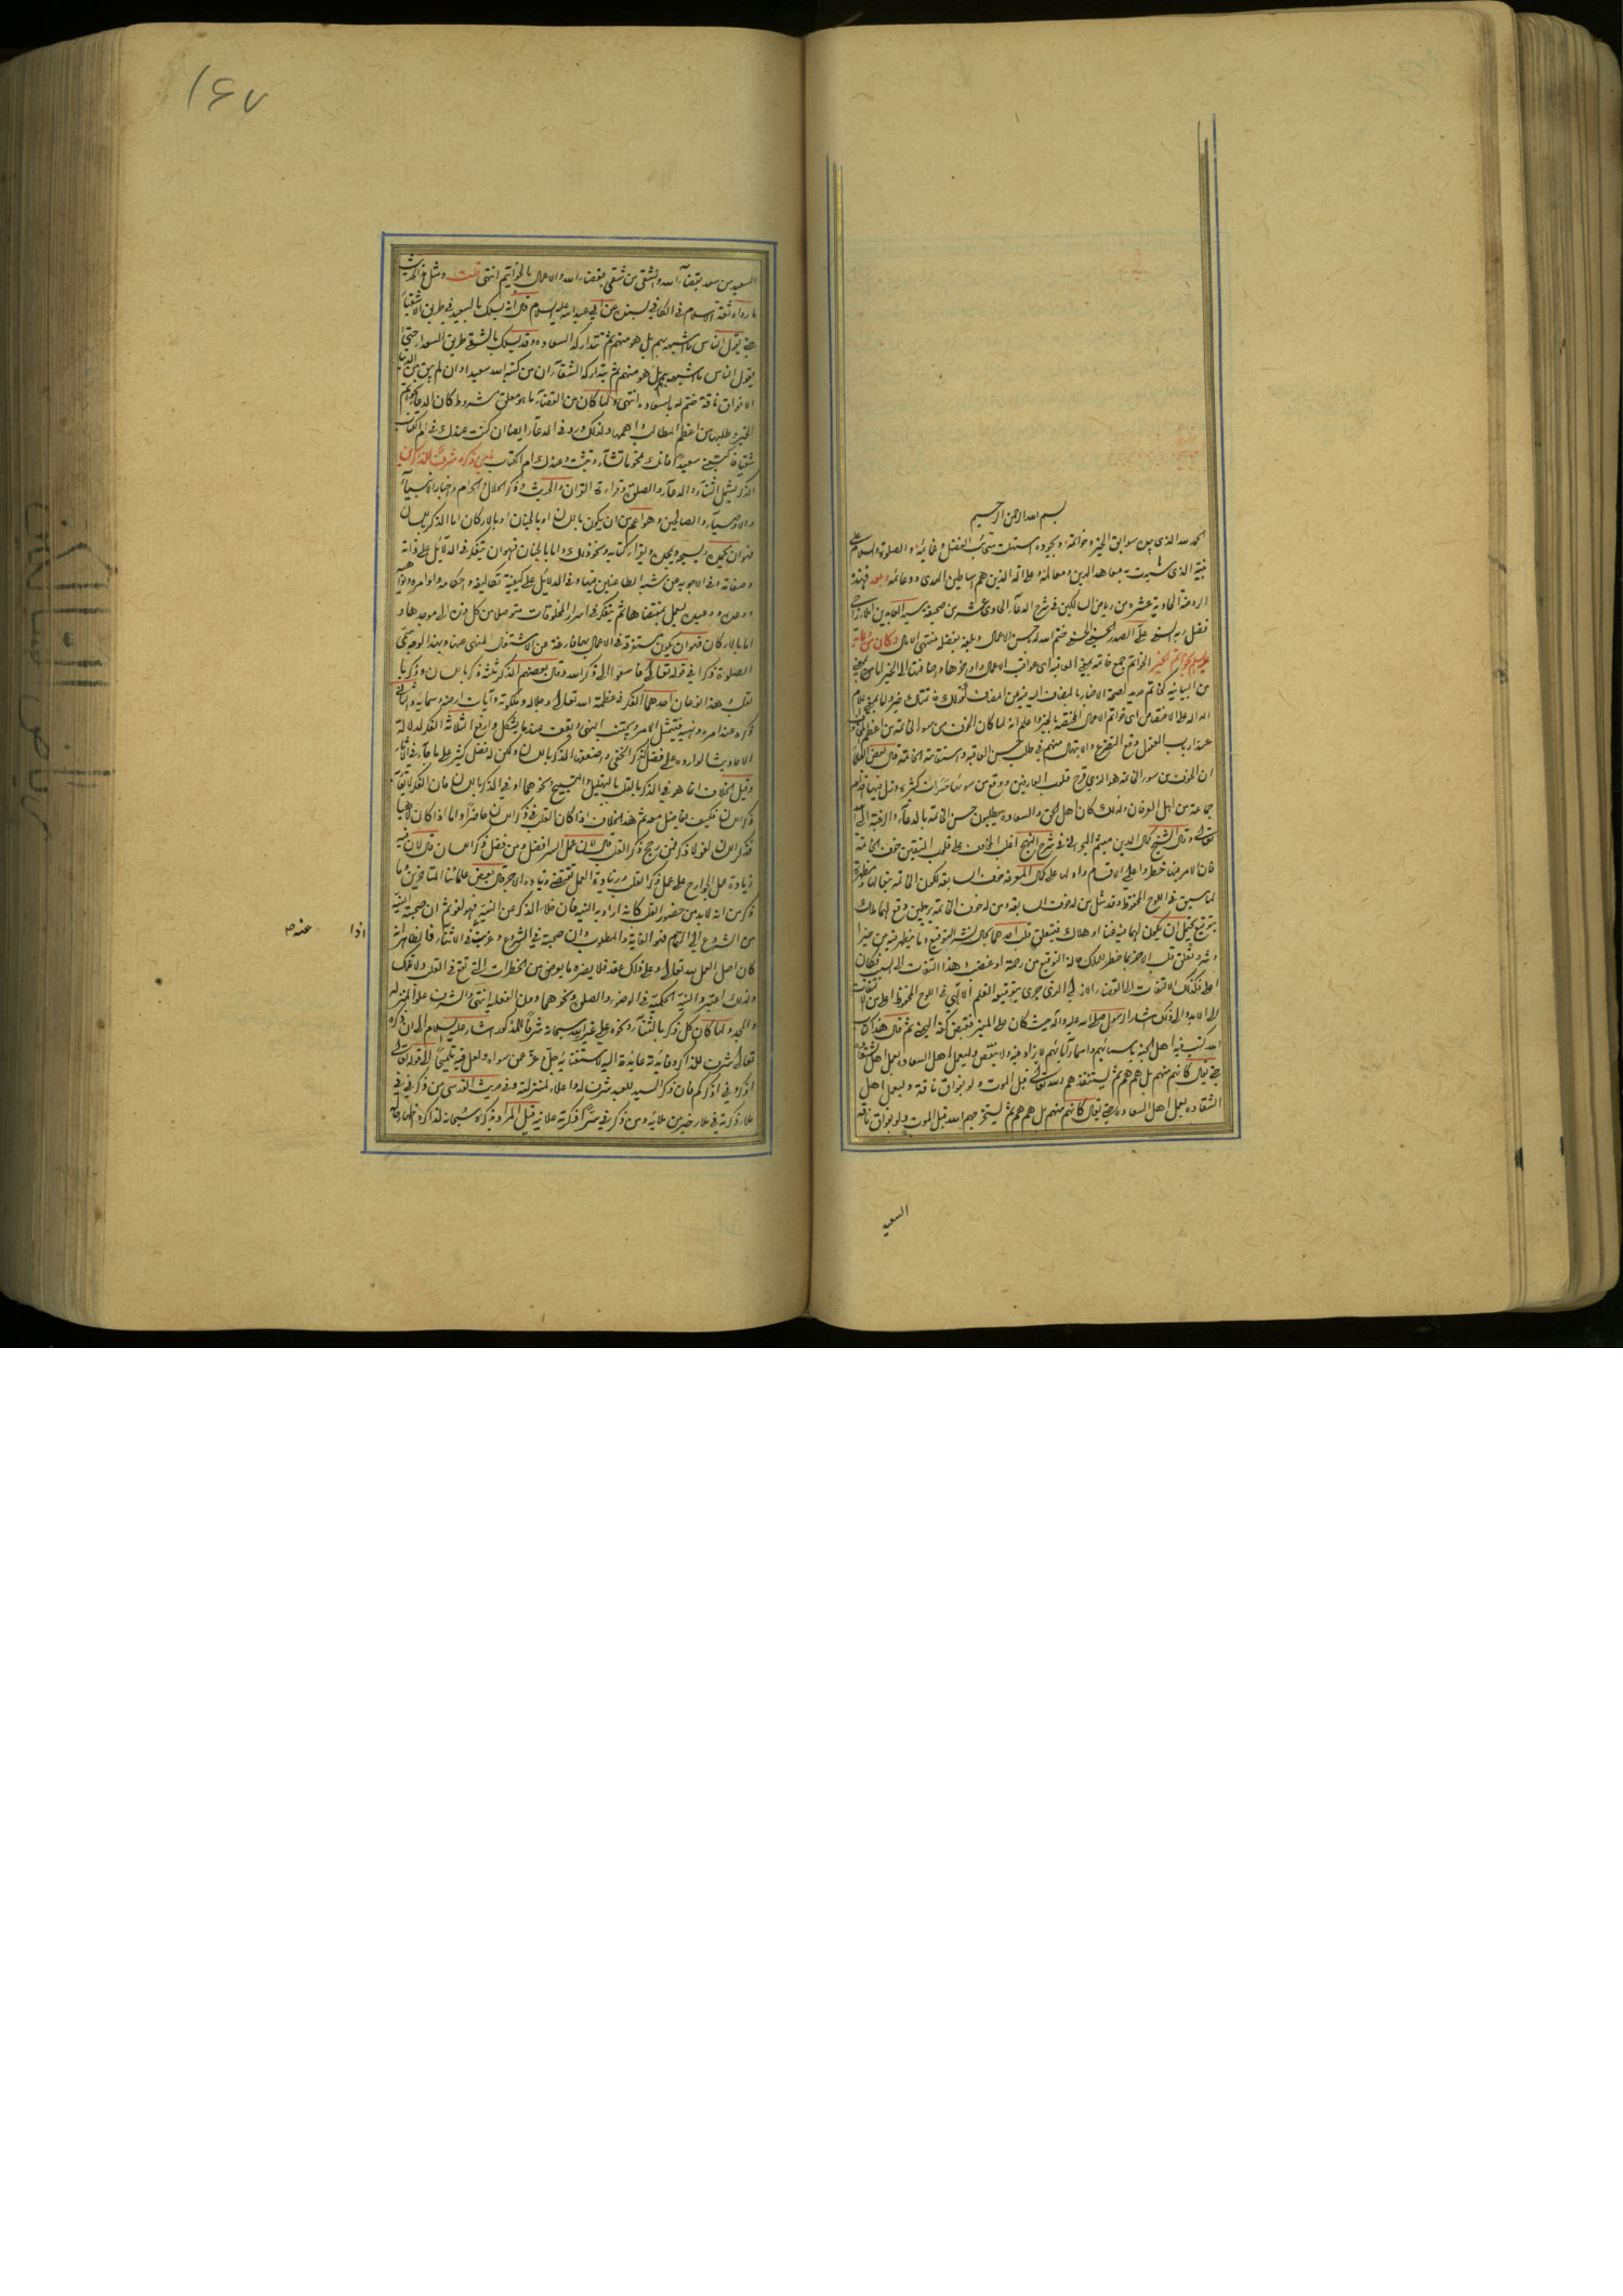 بسم الله الرحمن الرحيم
الحمد لله الذي بين سوابق الخير وخواتمه وبجوده استهلت سحائب الفضل وغمائمه والصلوة والسلام على
نبيه الذي شيدت به معاهد الدين ومعالمه وعلى اله الذين هم اساطين الهدى ودعائمه وبعد فهذه
الروضة الحادية عشرة من رياض السالكين في شرح الدعاء الحادي عشر من صحيفة سيد العابدين املاء راجي
فضل ربه السني علي الصدر الحسيني الحسني ختم الله له بحسن الاعمال وبلغه بفضله منتهى الامال وكان من دعائه
عليه السلام بخواتم الخير الخواتم جمع خاتمة بمعنى العاقبة اي عواقب الاعمال واواخرها واضافتها الى الخير اما بمعنى
من البيانية كخاتم حديد لصحة الاخبار بالمضاف اليه عن المضاف كقولك خاتمتك خير واما بمعنى اللام
الدالة على الاختصاص اي خواتم الاعمال المختصة بالخير واعلم انه لما كان الخوف من سوء الخاتمة من اعظم المخاوف
عند ارباب العقول وقع التضرع والابتهال منهم في طلب حسن العاقبة واستقامة الخاتمة قال بعض العلماء
ان الخوف من سوء الخاتمة هو الذي قرح قلوب العارفين ووقع من سوئها عثرات كثيرة وزل فيها اقدام
جماعة من اهل العرفان ولذلك كان اهل الحق والسعادة يطلبون حسن الخاتمة بالدعاء والرغبة الى الله
تعالى وقال الشيخ كمال الدين ميثم البحراني في شرح النهج اغلب المخاوف على قلوب المتقين خوف الخاتمة
فان الامر فيها خطر واعلى الاقسام وادلها على كمال المعرفة خوف السابقة لكون الخاتمة تبعا لها ومظهرة
لما سبق في اللوح المحفوظ وقد مثل من له خوف السابقة ومن له خوف الخاتمة برجلين وقع لهما ملك
بتوقيع يحتمل ان يكون لهما فيه غناء او هلاك فيتعلق قلب احدهما بحال نشر التوقيع وما يظهر فيه من خير او
شر وتعلق قلب الاخر بما خطر للملك حالة التوقيع من رحمة او غضب وهذا التفات الى السبب فكان
اعلى فكذلك الالتفات الى القضاء الازلي الذي جرى بتوقيعه القلم الالهي في اللوح المحفوظ اعلى من الالتفات
الى الابد والى ذلك اشار الرسول صلى الله عليه واله حيث كان على المنبر فقبض كفه اليمنى ثم قال هذا كتاب
الله كتب فيه اهل الجنة باسمائهم واسماء آبائهم لا يزاد فيه ولا ينقص وليعمل اهل السعادة بعمل اهل الشقاء
حتى يقال كانهم منهم بل هم هم ثم يستنقذهم الله تعالى قبل الموت ولو بفواق ناقة وليعمل اهل
الشقاوة بعمل اهل السعادة حتى يقال كانهم منهم بل هم هم ثم يستخرجهم الله قبل الموت ولو بفواق ناقة
السعيد
١٤٧
السعيد من سعد بقضاء الله والشقي من شقي بقضاء الله والاعمال بالخواتيم انتهى قلت ومثل هذا الحديث
ما رواه ثقة الاسلام في الكافي بسنده عن ابي عبد الله عليه السلام قال انه يسلك بالسعيد في طريق الاشقياء
حتى يقول الناس ما اشبهه بهم بل هو منهم ثم تتداركه السعادة وقد يسلك بالشقي طريق السعداء حتى
يقول الناس ما اشبهه بهم بل هو منهم ثم يتداركه الشقاء ان من كتبه الله سعيدا وان لم يبق من الدنيا
الا فواق ناقة ختم له بالسعادة انتهى ولما كان من القضاء ما هو معلق بشروط كان الدعاء بخواتم
الخير وطلبها من اعظم المطالب واهمها ولذلك ورد في الدعاء ايضا ان كنت عندك في ام الكتاب
شقيا فاكتبني سعيدا فانك تمحو ما تشاء وتثبت وعندك ام الكتاب يا من ذكره شرف للذاكرين
الذكر يشمل الثناء والدعاء والصلوة وقراءة القران والحديث وذكر الحلال والحرام واخبار الانبياء
والاوصياء والصالحين وهو اعم من ان يكون باللسان او بالجنان او بالاركان اما الذكر باللسان
فهو ان يحمده ويسبحه ويمجده ويقرا كتابه ونحو ذلك واما بالجنان فهو ان يتفكر في الدلائل على ذاته
وصفاته وفي الاجوبة عن شبه الطاعنين فيها وفي الدلائل على كيفية تكاليفه واحكامه واوامره ونواهيه
ووعده ووعيده ليعمل بمقتضاها ثم يتفكر في اسرار المخلوقات متوصلا من كل ذرة الى موجدها و
اما بالاركان فهو ان يكون مستغرقة في الاعمال بها فارغة عن الاشتغال المنهي عنها وبهذا الوجه سمى
الصلوة ذكرا في قوله تعالى فاسعوا الى ذكر الله وقال بعضهم الذكر ثلثة ذكر باللسان وذكر با
لقلب وهذا نوعان احدهما الفكر في عظمة الله تعالى وجلاله وملكوته وآيات ارضه وسمائه والثاني
ذكره عند امره ونهيه فيمتثل الامر ويجتنب النهي ويقف عندما يشكل وارفع الثلاثة الفكر لدلالة
الاحاديث الواردة على فضل الذكر الخفي واضعفها الذكر باللسان ولكن له فضل كثير على ما جاء في الآثار
وقيل الخلاف انما هو في الذكر بالقلب بالتهليل والتسبيح ونحوهما او في الذكر باللسان فان الفكر لا يقاربه
ذكر اللسان فكيف يفاضل معه ثم هذا الخلاف اذا كان القلب في ذكر اللسان حاضرا واما اذا كان لاهيا
فذكر اللسان لغو لا ذكر فمن رجح ذكر القلب قال لان عمل السر افضل ومن فضل ذكر اللسان قال لان فيه
زيادة عمل الجوارح على عمل ذكر القلب وزيادة العمل تقتضي زيادة الاجر قال بعض علمائنا المتاخرين ما
ذكر من انه لا بد من حضور القلب كانه اراد به النية فان خلا الذكر عن النية فهو لغو ثم ان صحبته النية
من الشروع الى التمام فهو الغاية والمطلوب وان صحبته في الشروع وعزبت في الاثناء فالظاهر انه اذا
كان اصل العمل لله تعالى وعلى ذلك عقد فلا يضره ما يعرض من الخطرات التي تقع في القلب ولا تملك
ولذلك اعتبروا النية الحكمية في الوضوء والصلوة ونحوهما دون الفعلية انتهى والشرف علو المنزلة
والمجد ولما كان كل ذكر بالثناء ونحوه على غير الله سبحانه شرفا للمذكور اشار عليه السلام الى ان ذكره
تعالى شرف للذاكر وفائدته عائدة اليه لاستغنائه جل وعز عمن سواه ولعل فيه تلميحا الى قوله تعالى
اذكروني اذكركم فان ذكر السيد للعبد شرف له واعلاء لمنزلته وفي حديث القدسي من ذكرني في
ملاء ذكرته في ملاء خير من ملائه ومن ذكرني سرا ذكرته علانية قيل المراد بذكره سبحانه لذاكره